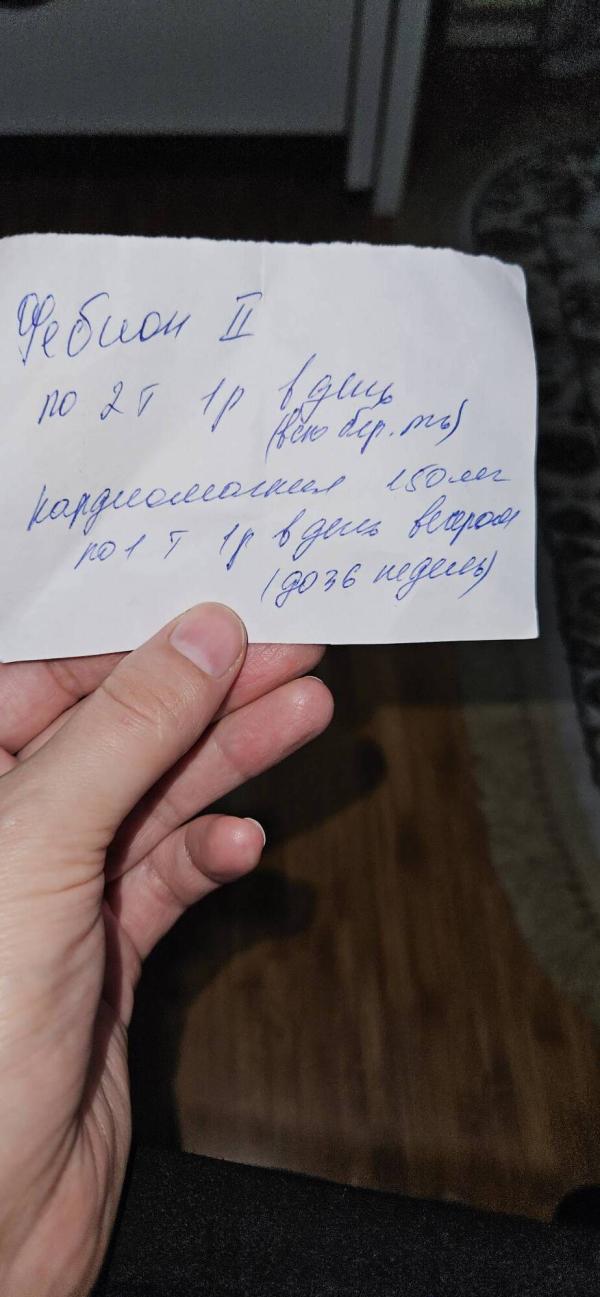 Фебион II
по 2 т 1р в день
(всю бер.ть)
кардиомагнил 150мг
по 1 т 1р в день вечером
(до 36 недель)